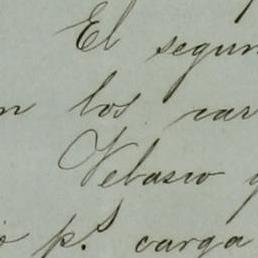 El segun
n los car
Velasco q
o p.s carga